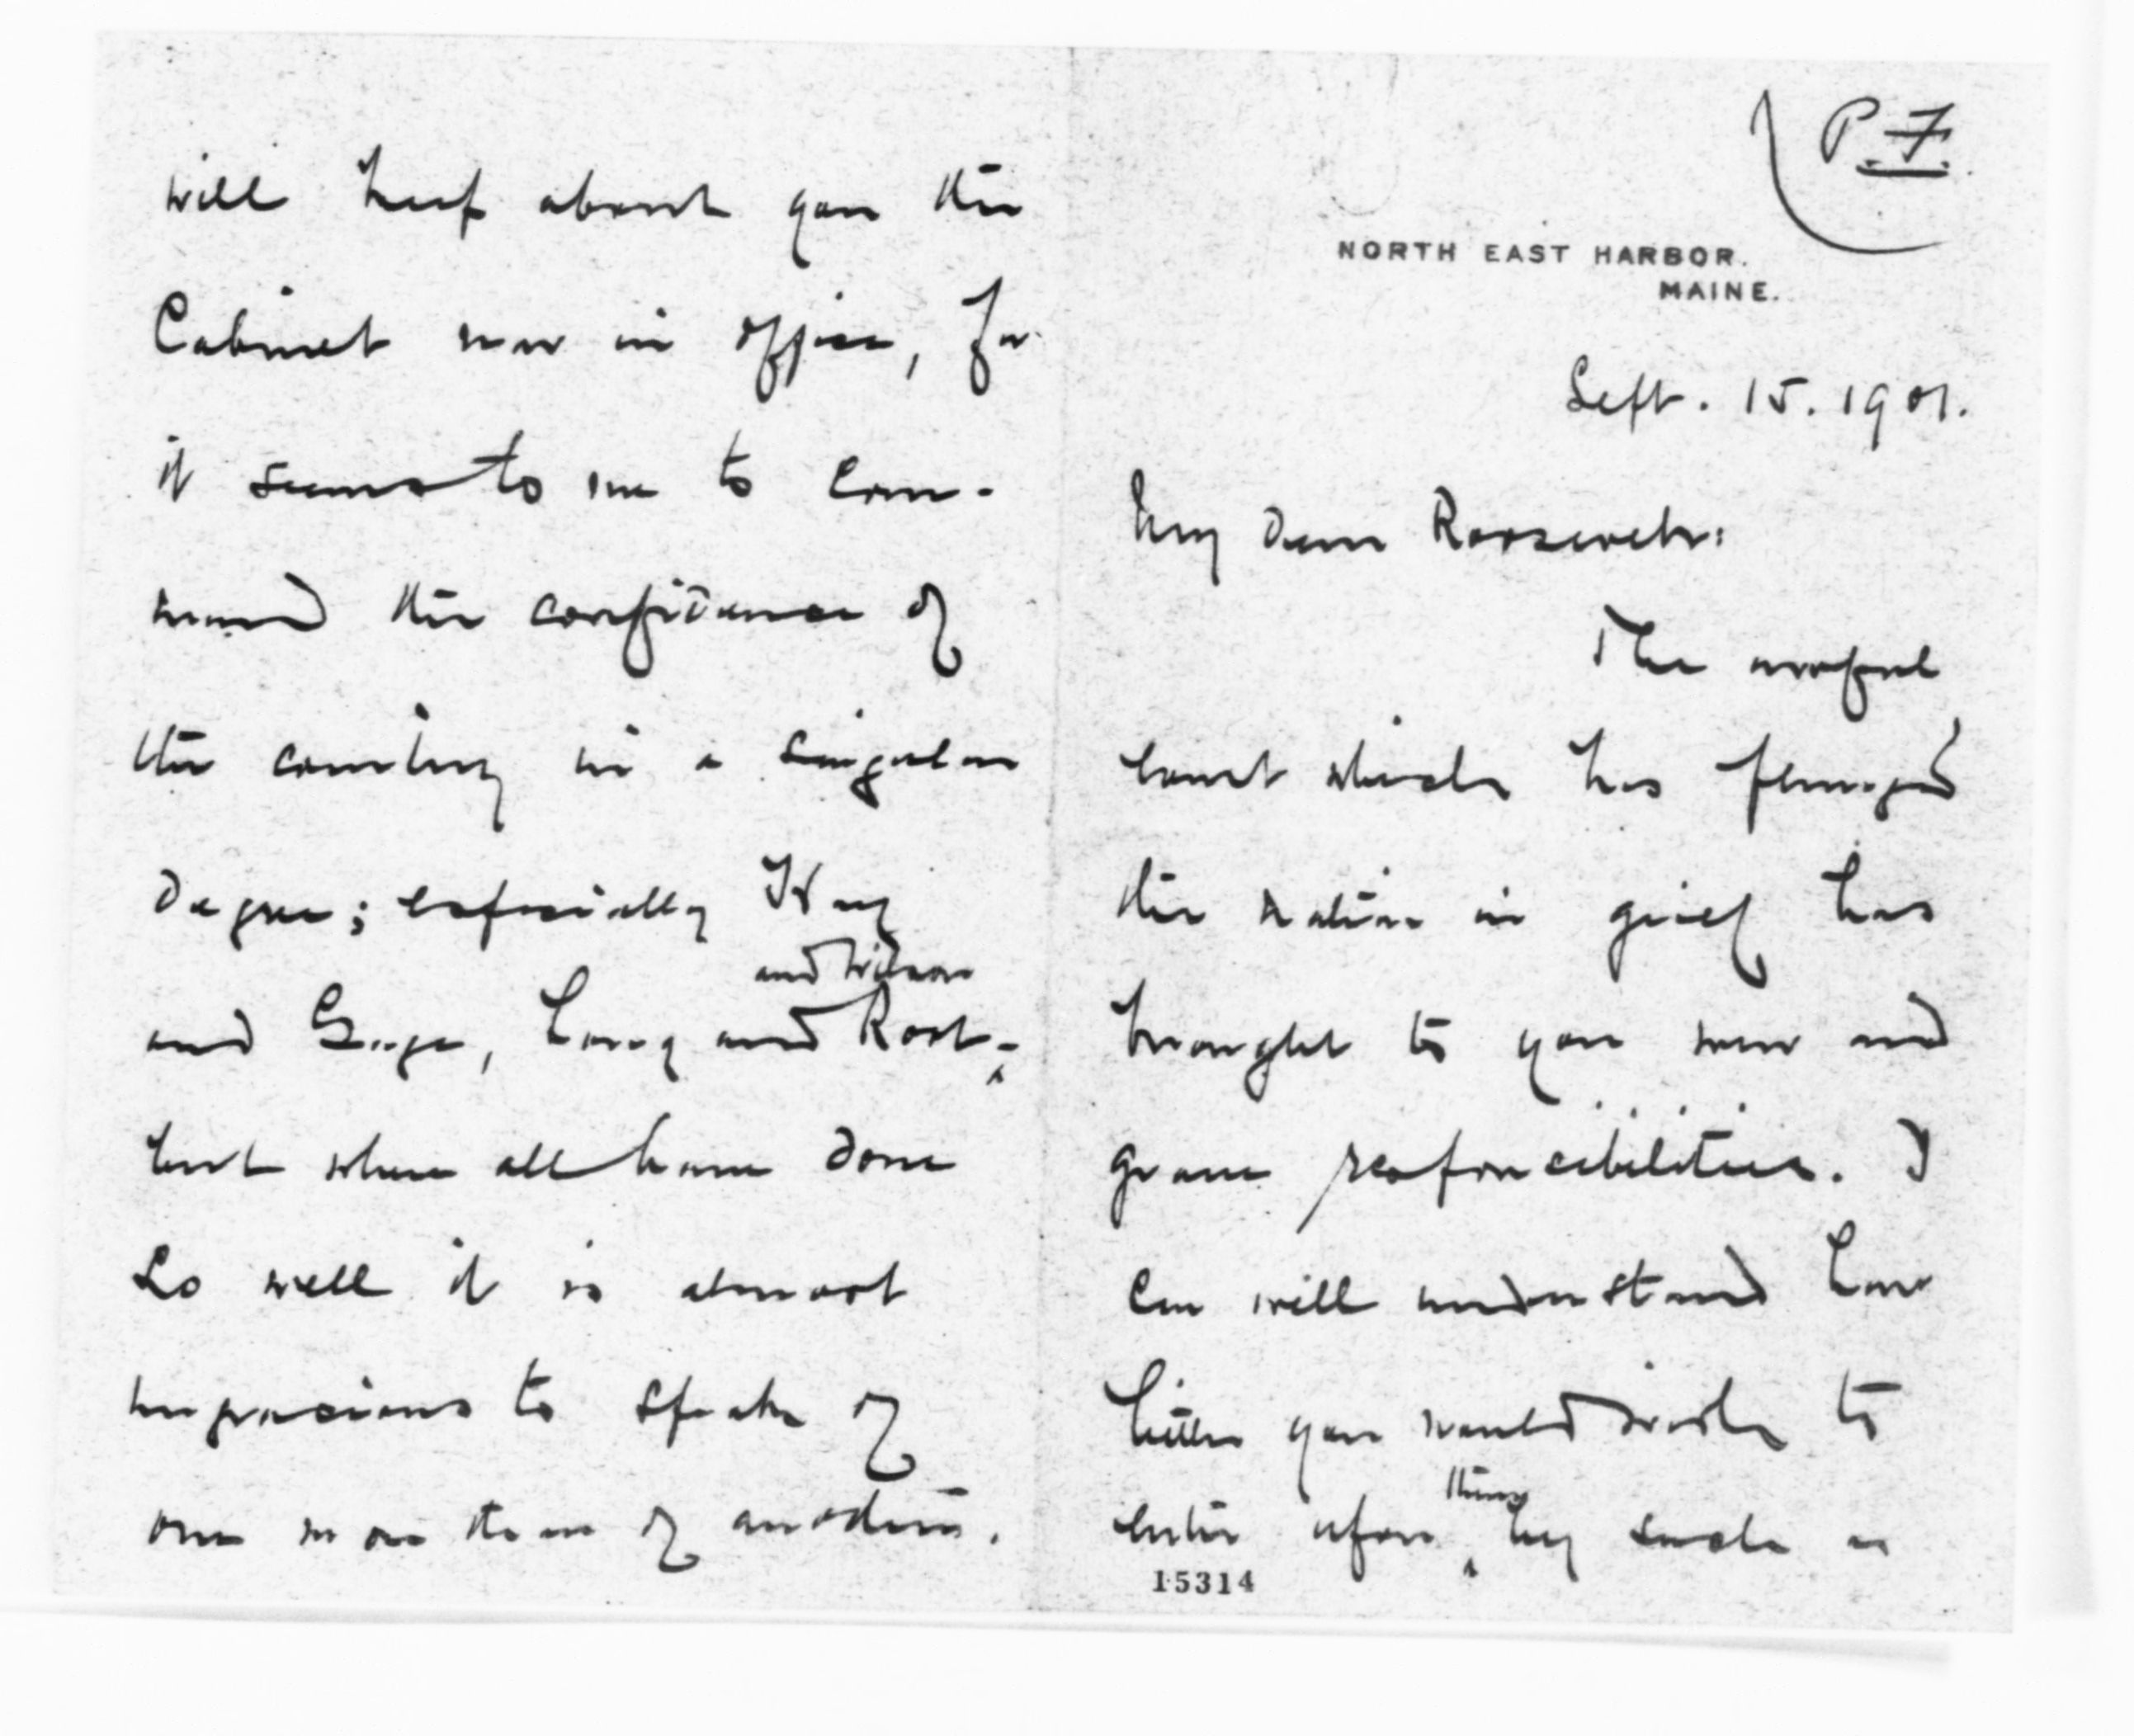 P.F.
NORTH EAST HARBOR.
MAINE.
Sept. 15. 1901.
My dear Roosevelt:
The awful
event which has plunged
the nation in grief has
brought to you new and
grave responsibilities. I
can well understand how
little you would wish to
them
enter upon ‸ by such a
15314
will keep about you the
Cabinet now in office, for
it seems to me to com-
mand the confidence of
the country in a singular
degree; especially Hay
and Wilson
and Gage, Long and Root ‸ -
but where all have done
so well it is almost
ungracious to speak of
one more than of another.